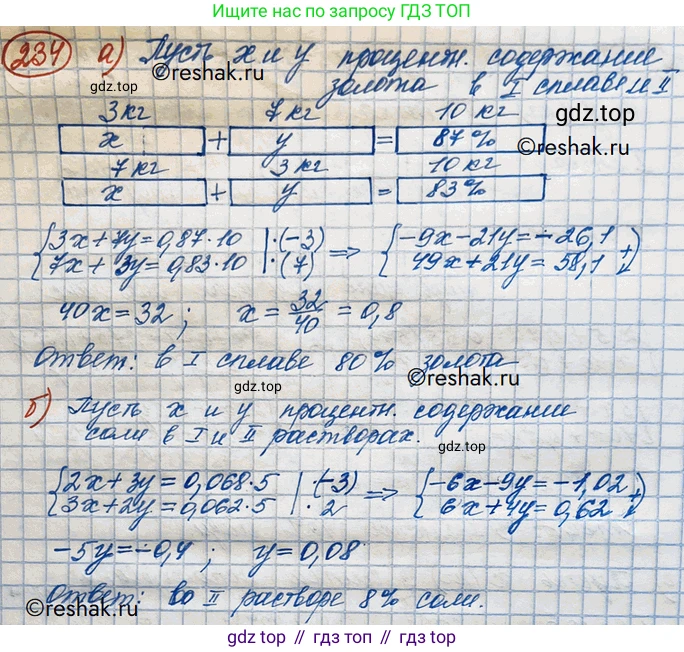 Ищите нас по запросу ГДЗ ТОП
234 а) Пусть x и y процентн. содержание
©reshak.ru золота в I сплаве и II
gdz top
3 кг 7 кг 10 кг
gdz top
x + y = 87%
7 кг 3 кг 10 кг
x + y = 83%
©reshak.ru
{3x+7y=0,87·10 |·(-3) ⇒ {-9x-21y=-26,1
7x+3y=0,83·10 |·(7) 49x+21y=58,1 +
40x=32; x=32/40=0,8
Ответ: в I сплаве 80% золота
gdz top ©reshak.ru
б) Пусть x и y процентн. содержание
соли в I и II растворах.
gdz top
{2x+3y=0,068·5 |·(-3) ⇒ {-6x-9y=-1,02
3x+2y=0,062·5 |·2 6x+4y=0,62 +
©reshak.ru
-5y=-0,4; y=0,08
Ответ: во II растворе 8% соли.
©reshak.ru
gdz top // гдз топ // gdz top